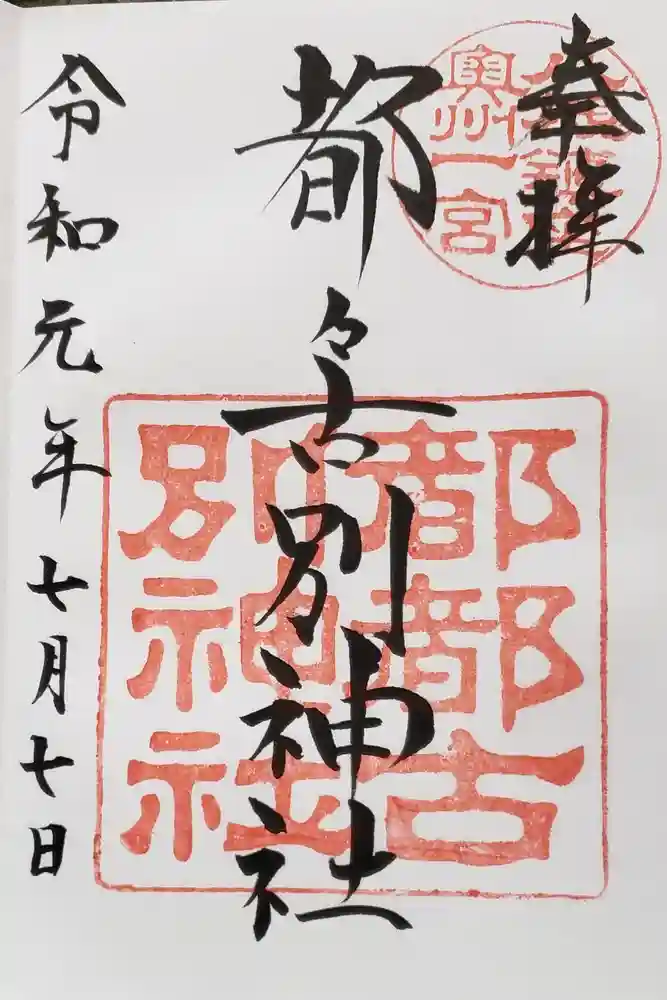 奉拝
奥州一宮
都々古別神社
都都古
別神社
令和元年七月七日